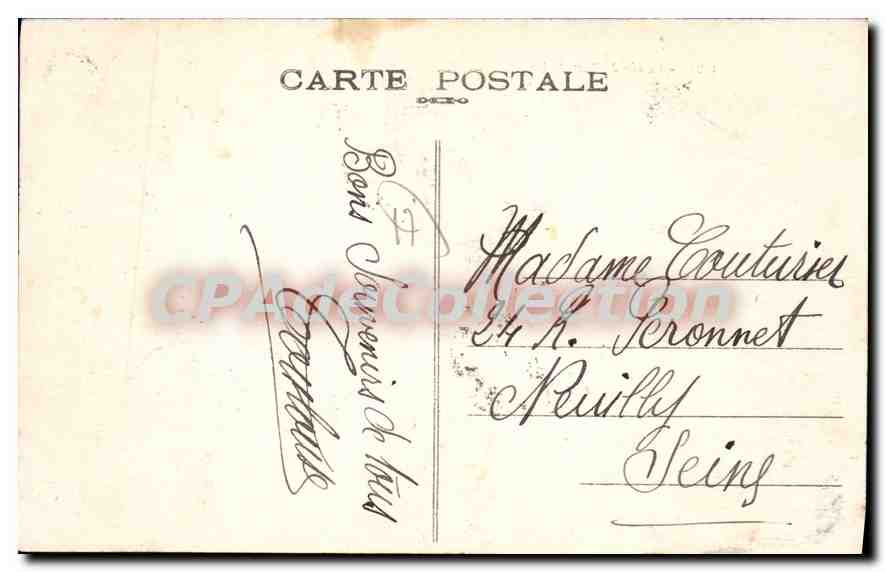 CARTE POSTALE
Bons Souvenirs de tous
Madame Couturier
24 R. Peronnet
Neuilly
Seine
CPAdeCollection